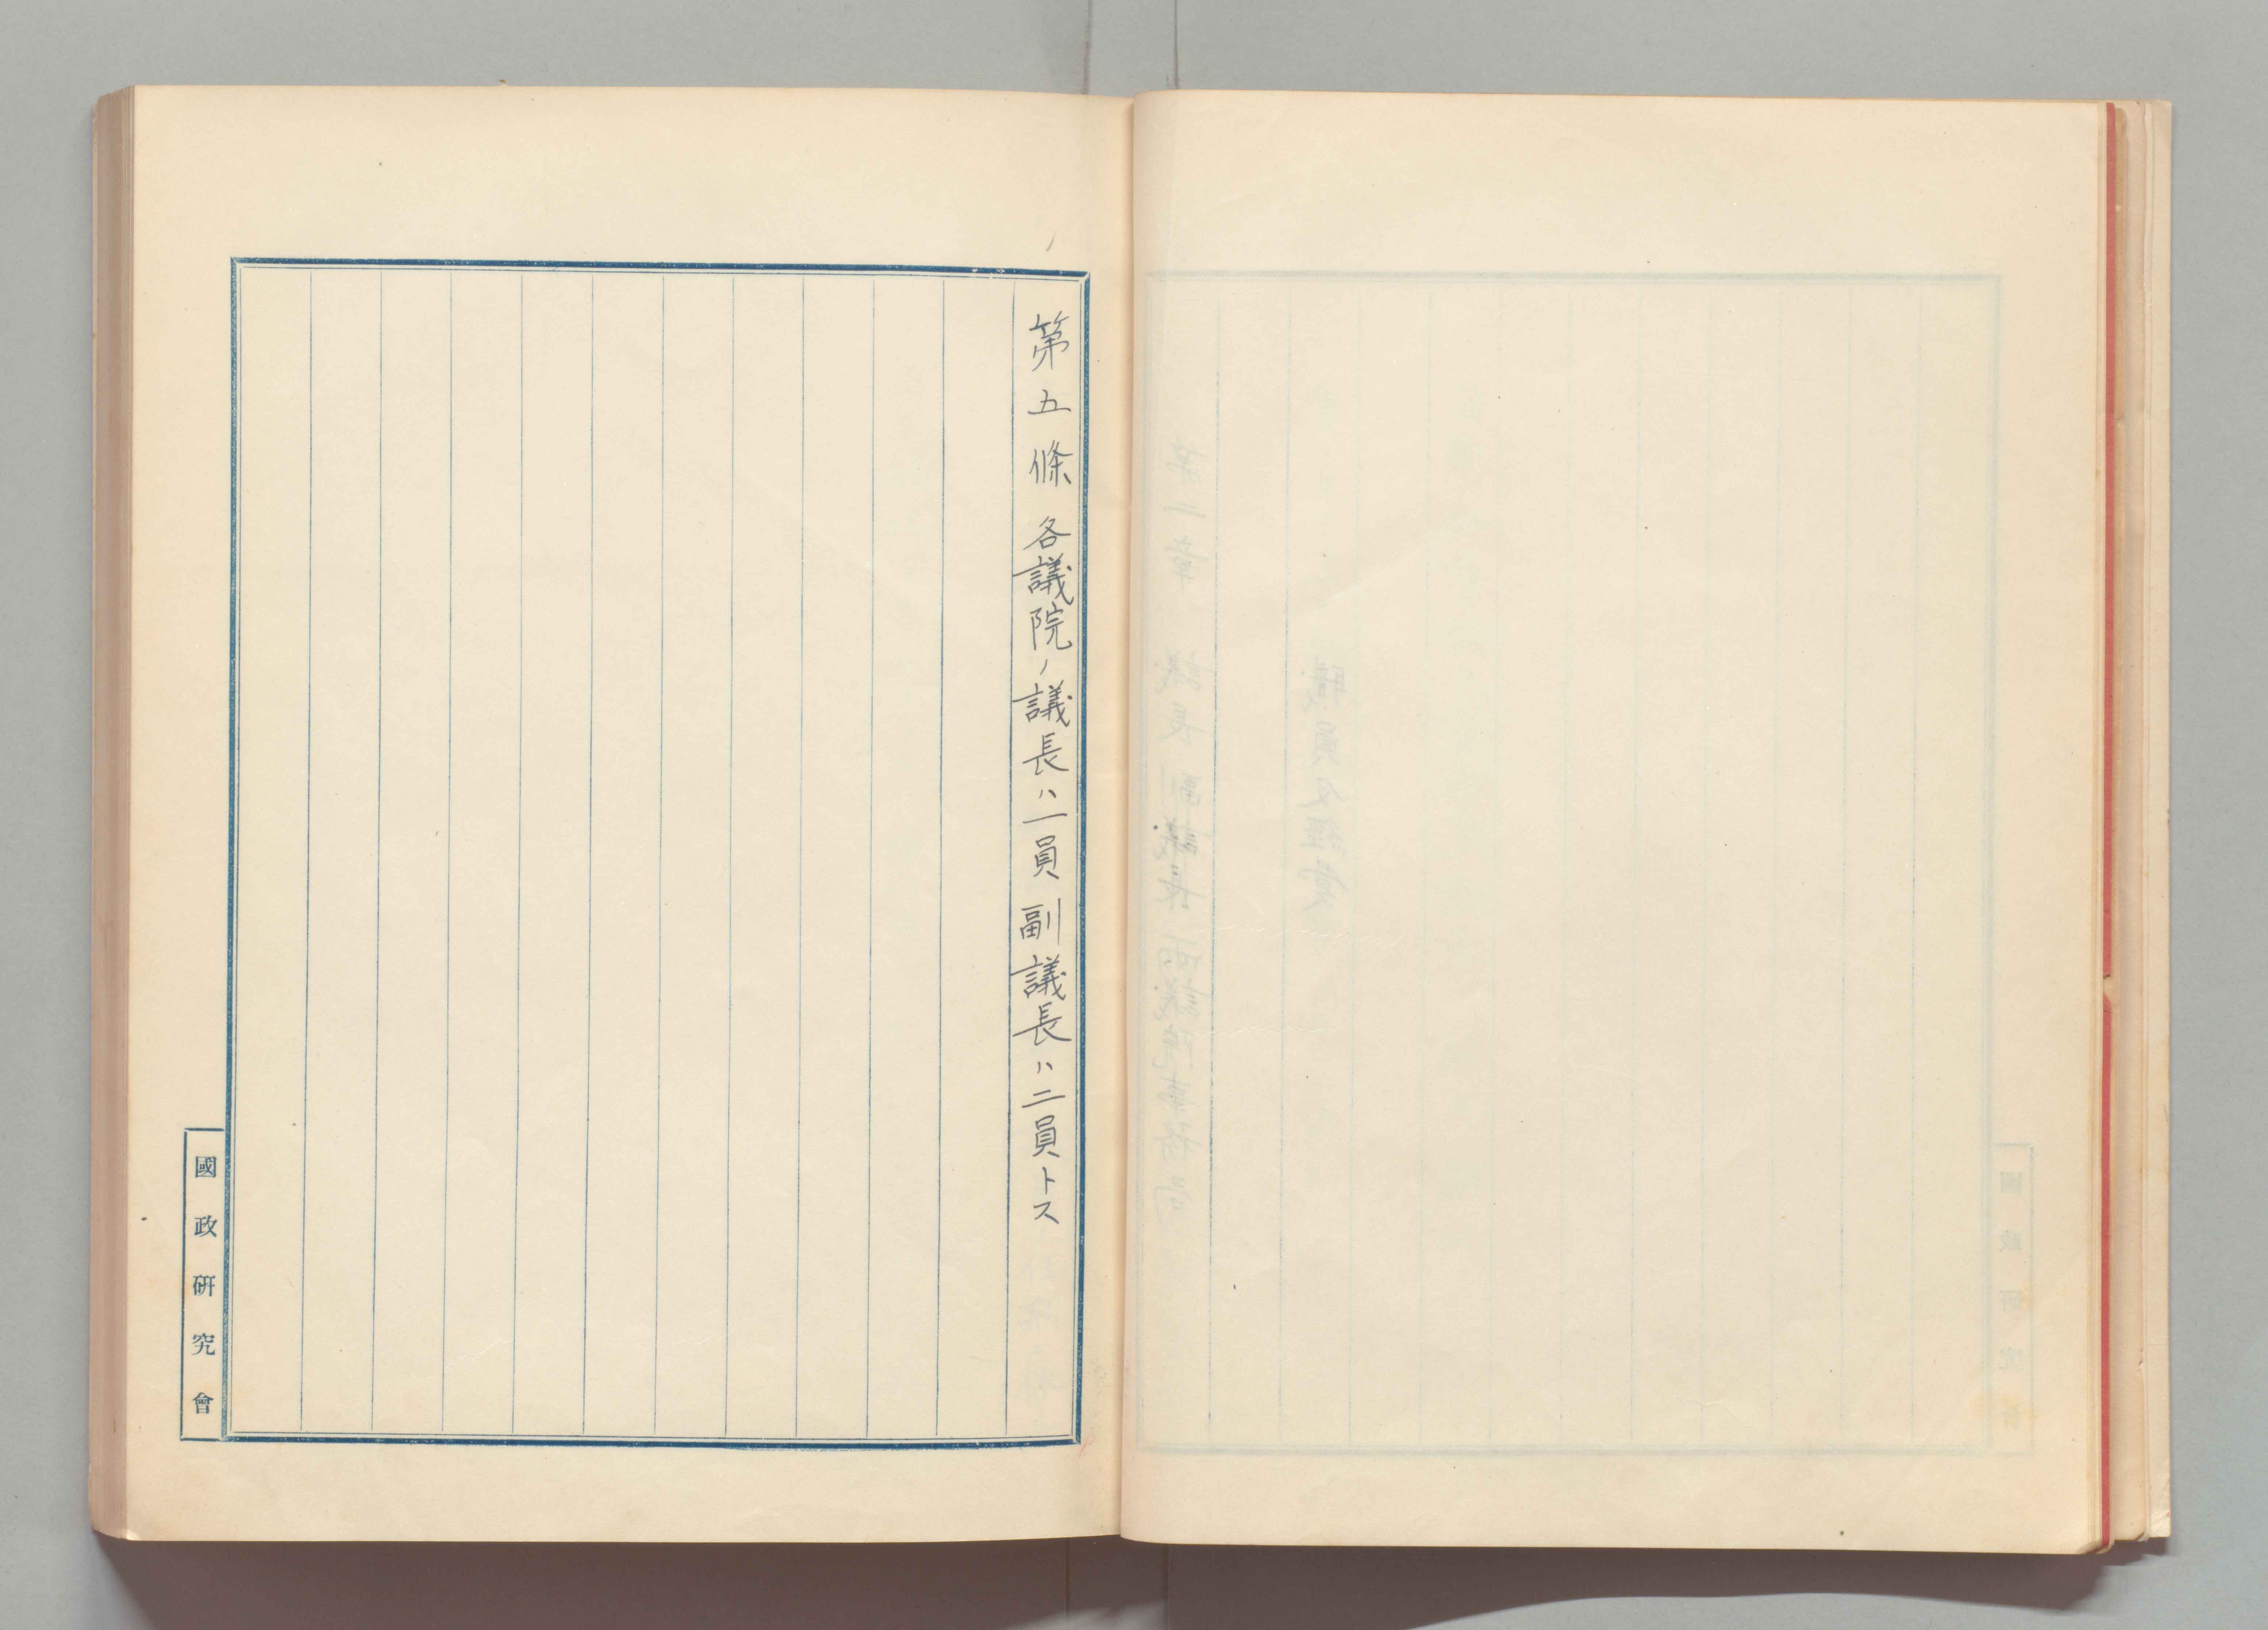 第五條 各議院ノ議長ハ一員副議長ハ二員トス
國政研究會